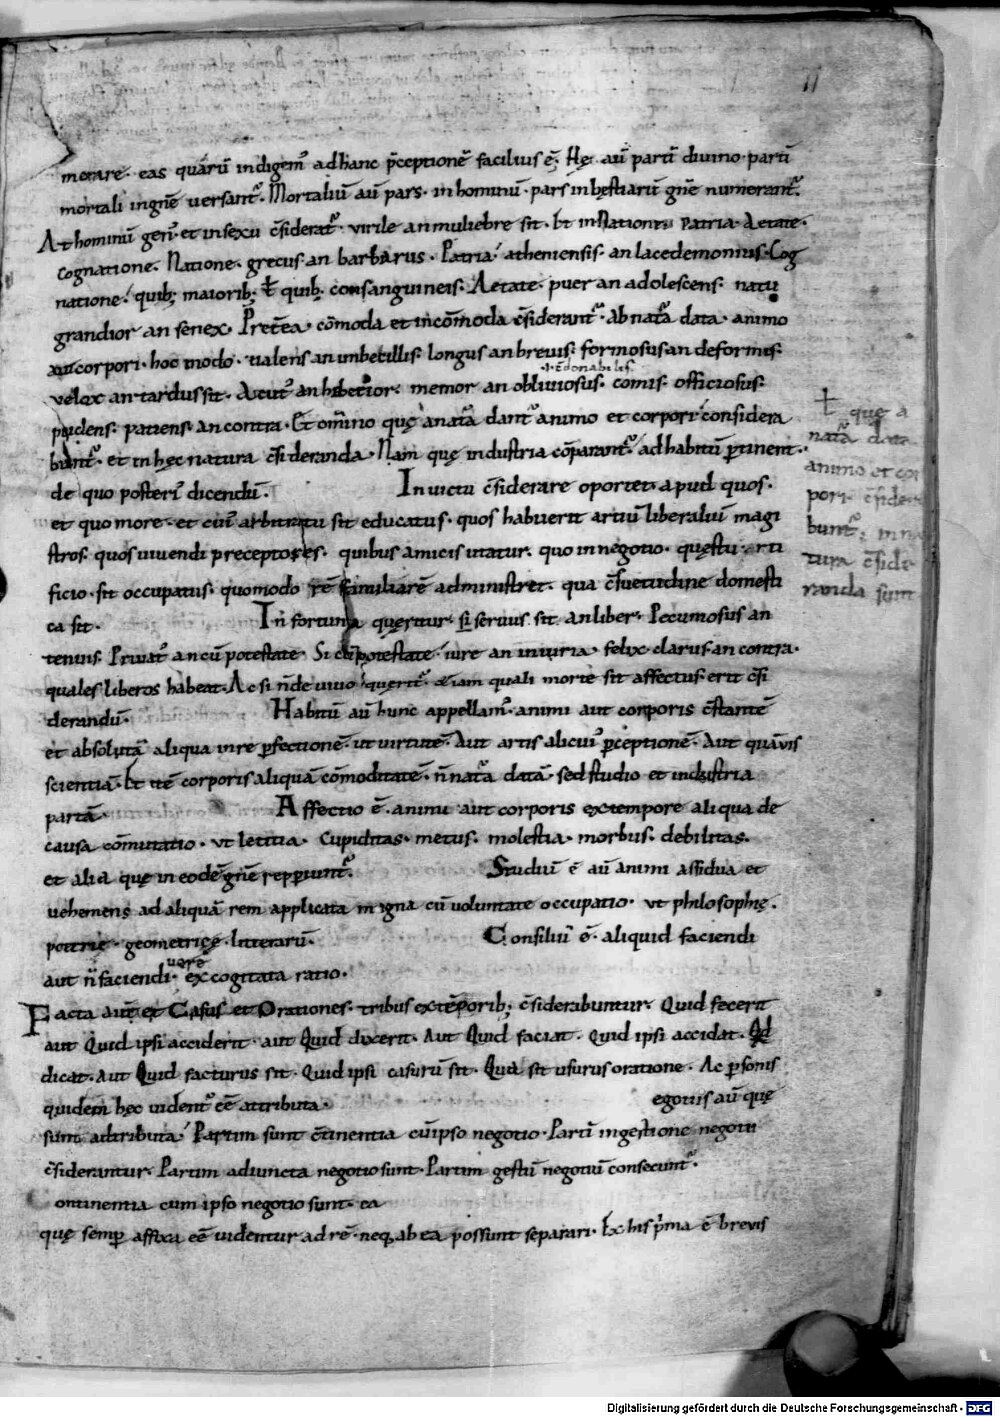 11
morare. eas quarū indigem᷒ ad hanc p̄ceptionē facilius ē. Hę aū partī divino. partī
mortali in gn̄e uersant᷒. Mortaliū aū pars. in hominū. pars in bęstiarū gn̄e numerant᷒.
At hominū gen᷒. et in sexu c̄siderat᷒. uirile an muliebre sit. Et in statione. patria. Aetate.
cognatione. Natione. grecus an barbarus. Patria. atheniensis. an lacedemonius. Cog
natione. quib; maiorib; ł quib; consanguineis. Aetate. puer an adolescens. natu
grandior an senex. Pret̄ea. cōmoda et incōmoda c̄siderant᷒. ab nat᷒a data. animo
aut corpori. hoc modo. ualens an imbecillis. longus an breuis. formosus an deformis.
.i. redonabilis.
uelox an tardus sit. Acut᷒ an hebetior. memor an obliuiosus. comis. officiosus.
pudens. patiens. an contra. Et om̄ino quę a nat᷒a dant᷒ animo et corpori considera
bunt᷒. et in hęc natura c̄sideranda. Nam quę industria cōparant᷒. ad habitū ꝑtinent.
de quo posteri᷒ dicendū. In uictu c̄siderare oportet. apud quos.
et quo more. et cui᷒ arbitratu sit educatus. quos habuerit artiū liberaliū magi
stros. quos uiuendi preceptores. quibus amicis utatur. quo in negotio. quęstu. arti
ficio. sit occupatus. quomodo rē familiarē administret. qua c̄suetudine domesti
ca sit. In fortuna quęritur. si seruus sit an liber. Pecuniosus an
tenuis. Priuat᷒ an cū potestate. Si cū potestate. iure an iniuria. felix clarus. an contra.
quales liberos habeat. Ac si n̄ de uiuo querit᷒. etiam quali morte sit affectus erit c̄si
derandū. Habitū aū hunc appellam᷒. animi aut corporis c̄stantē
et absolutā aliqua in re ꝑfectionē. ut uirtutē. Aut artis alicui᷒ ꝑceptionē. Aut quāuis
scientiā. Et itē corporis aliquā cōmoditatē. n̄ nat᷒a datā. sed studio et industria
partā. Affectio ē. animi aut corporis ex tempore aliqua de
causa cōmutatio. ut letitia. Cupiditas. metus. molestia. morbus. debilitas.
et alia quę in eodē gn̄e reꝑiunt᷒. Studiū ē aū animi assidua et
uehemens ad aliquā rem applicata magna cū uoluntate occupatio. ut philosophię.
poetrię. geometricę. litterarū. Consiliū ē. aliquid faciendi
uere
aut n̄ faciendi. excogitata ratio.
Facta aūt et Casus et Orationes. tribus ex tēporib; c̄siderabuntur. Quid fecerit
aut Quid ipsi acciderit. aut Quid dixerit. Aut Quid faciat. Quid ipsi accidat. Qd
dicat. Aut Quid facturus sit. Quid ipsi casurū sit. Qua sit usurus oratione. Ac ꝑsonis
quidem hęc uident᷒ eē attributa. egotiis aū quę
sunt adtributa. Partim sunt c̄tinentia cū ipso negotio. Partī in gestione negotii
c̄siderantur. Partim adiuncta negotio sunt. Partim gestū negotiū consecunt᷒.
ontinentia cum ipso negotio sunt. ea
quę semꝑ affixa eē uidentur ad rē. neq; ab ea possunt separari. Ex his p̄ma ē breuis
† quę a
nat᷒a data
animo et cor
pori. c̄sider
bunt᷒; in na
tura c̄side
randa sunt
Digitalisierung gefördert durch die Deutsche Forschungsgemeinschaft - DFG